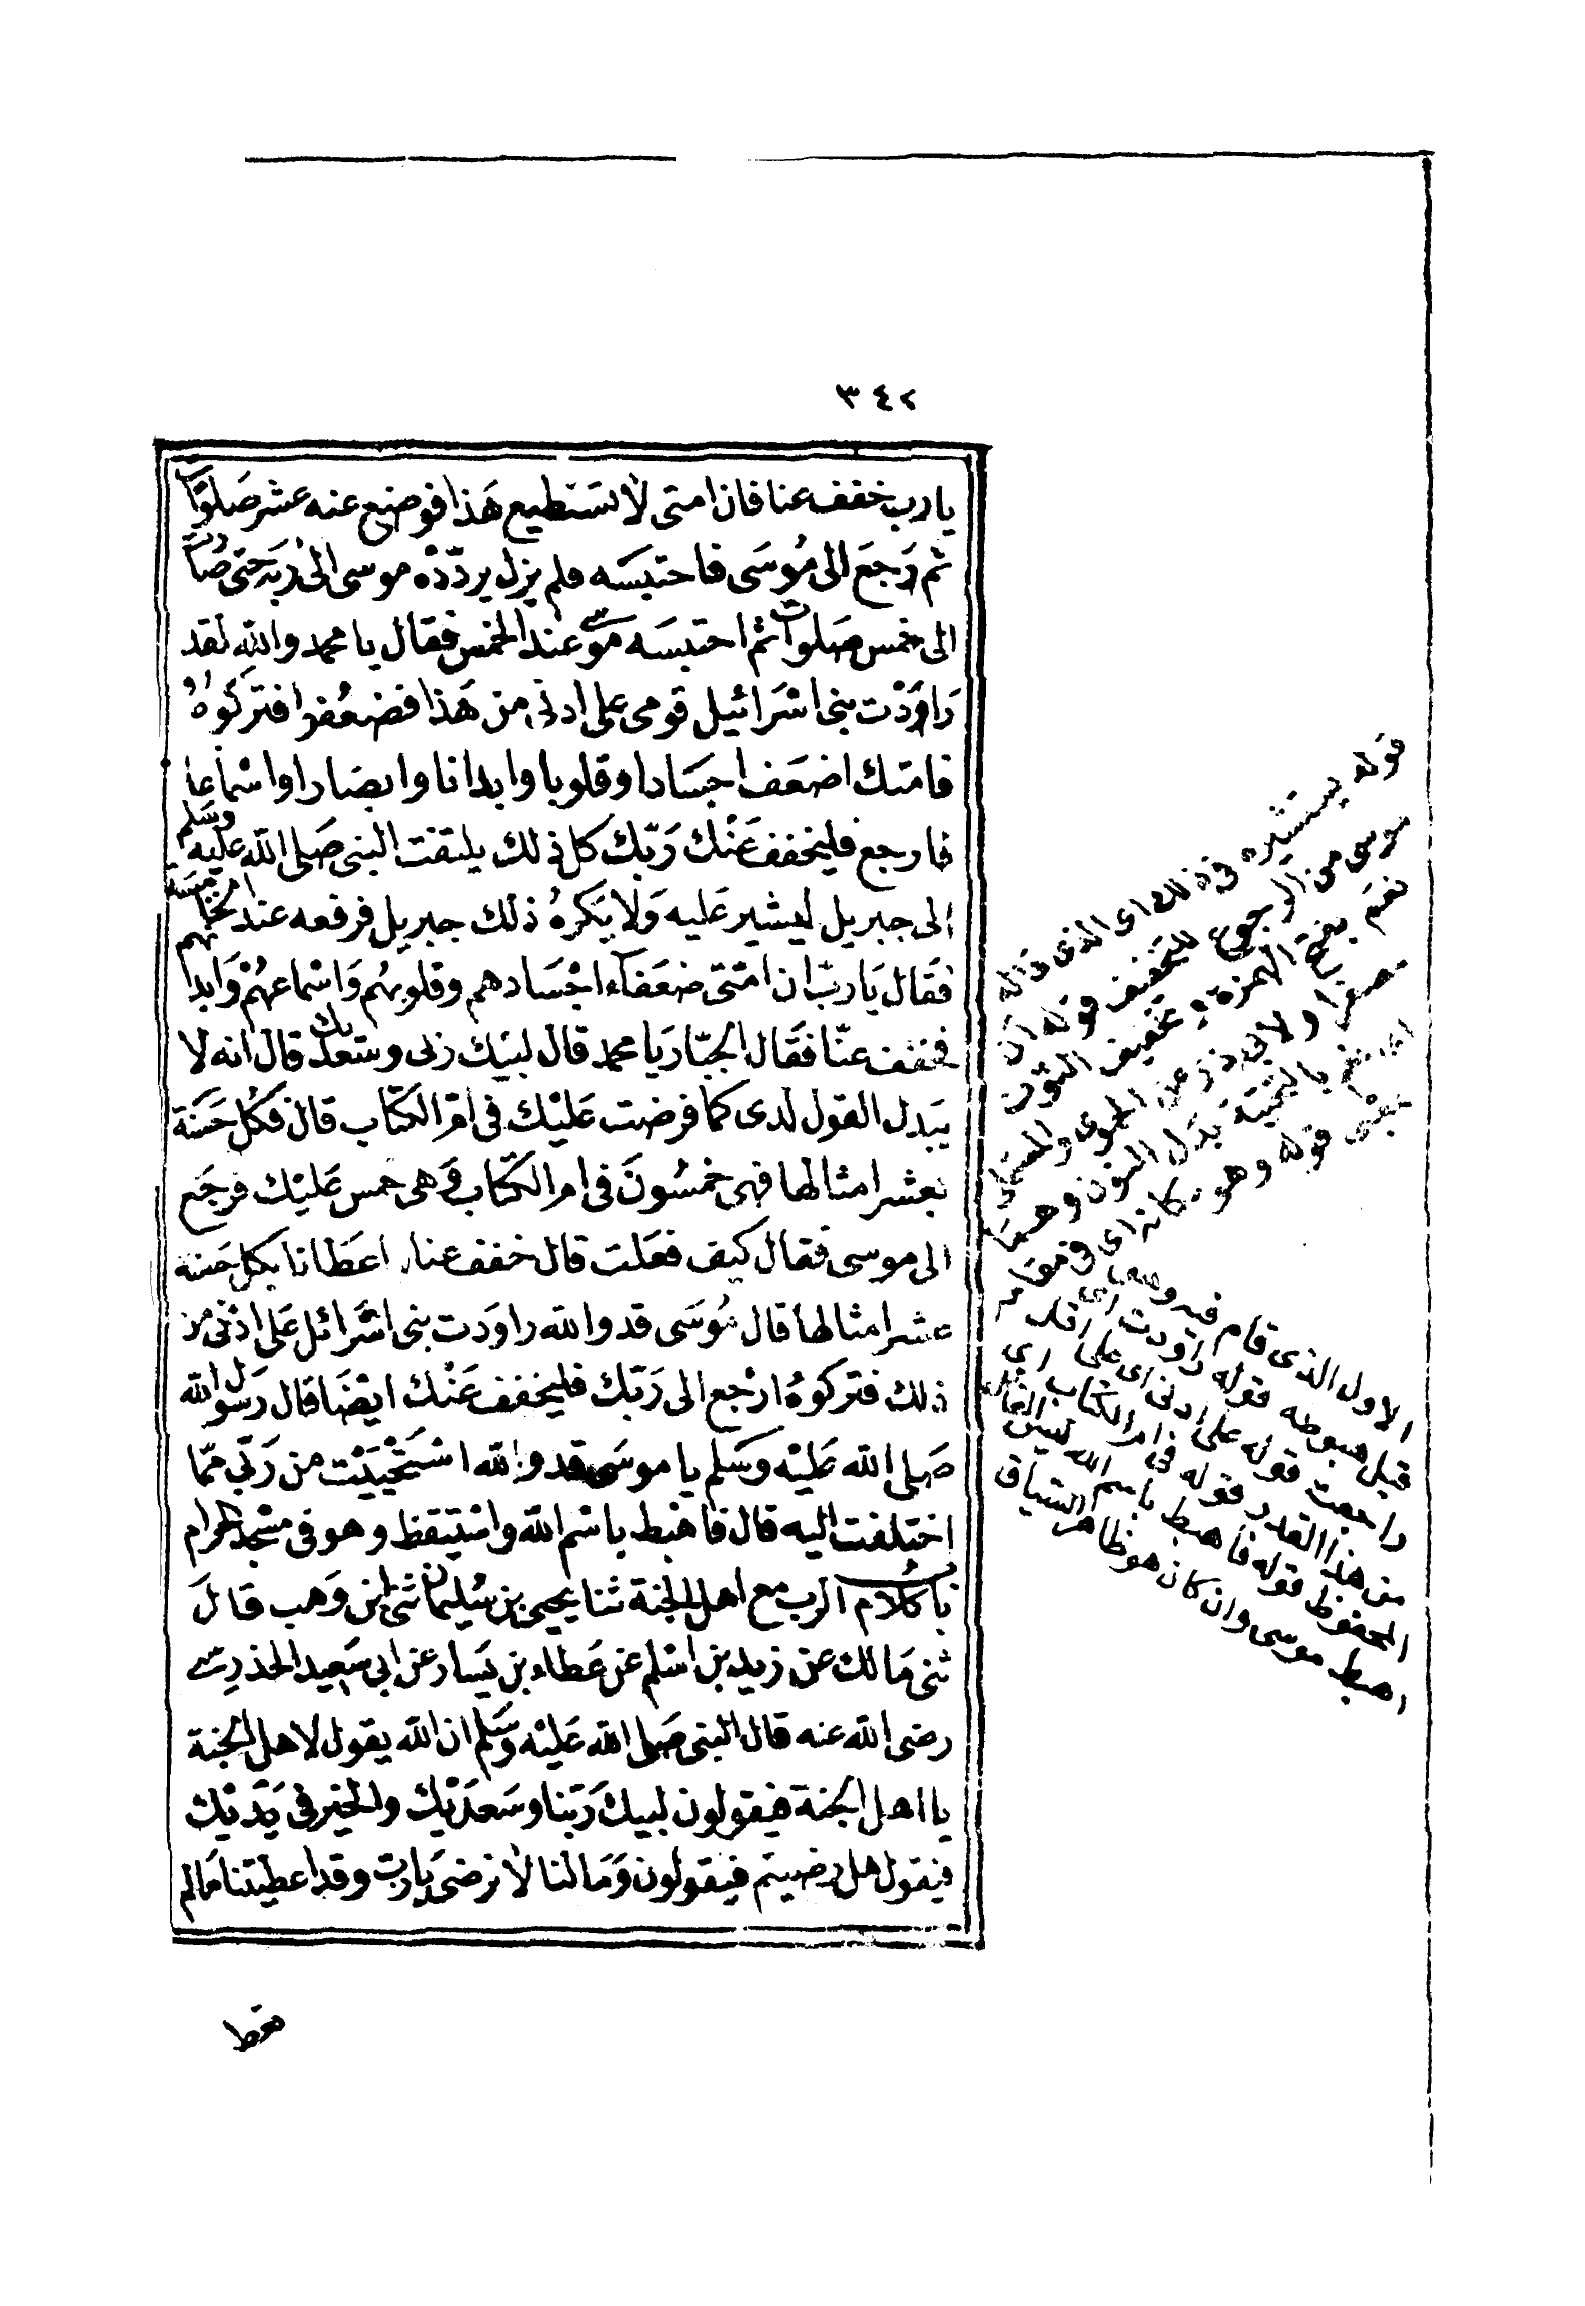 ٣٤٢
يا رب خفف عنا فان امتى لا تستطيع هذا فوضع عنه عشر صلوات
ثم رجع الى موسى فاحتبسه فلم يزل يردده موسى الى ربه حتى صارت
الى خمس صلوات ثم احتبسه موسى عند الخمس فقال يا محمد والله لقد
راودت بنى اسرائيل قومى على ادنى من هذا فضعفوا فتركوه
فامتك اضعف اجسادا وقلوبا وابدانا وابصارا واسماعا
فارجع فليخفف عنك ربك كل ذلك يلتفت النبى صلى الله عليه وسلم
الى جبريل ليشير عليه ولا يكره ذلك جبريل فرفعه عند الخامسة
فقال يا رب ان امتى ضعفاء اجسادهم وقلوبهم واسماعهم وابدانهم
فخفف عنا فقال الجبار يا محمد قال لبيك ربى وسعديك قال انه لا
يبدل القول لدى كما فرضت عليك فى ام الكتاب قال فكل حسنة
بعشر امثالها فهى خمسون فى ام الكتاب وهى خمس عليك فرجع
الى موسى فقال كيف فعلت قال خفف عنا اعطانا بكل حسنة
عشر امثالها قال موسى قد والله راودت بنى اسرائل على ادنى من
ذلك فتركوه ارجع الى ربك فليخفف عنك ايضا قال رسول الله
صلى الله عليه وسلم يا موسى قد والله استحييت من ربى مما
اختلفت اليه قال فاهبط باسم الله واستيقظ وهو فى مسجد الحرام
باب كلام الرب مع اهل الجنة ثنا يحيى بن سليمان ثنى ابن وهب قال
ثنى مالك عن زيد بن اسلم عن عطاء بن يسار عن ابى سعيد الخدرى
رضى الله عنه قال النبى صلى الله عليه وسلم ان الله يقول لاهل الجنة
يا اهل الجنة فيقولون لبيك ربنا وسعديك والخير فى يديك
فيقول هل رضيتم فيقولون وما لنا لا نرضى يا رب وقد اعطيتنا ما لم
قوله يستشيره فى ذلك اى الذى قاله
موسى من الرجوع للتخفيف قوله ان
نعم بفتح الهمزة وتخفيف النون
ولابى ذر عن الحموى والمستملى
اى نعم بالتحتية بدل النون وهما
بمعنى قوله وهو مكانه اى فى مقامه
الاول الذى قام فيه
قبل هبوطه قوله راودت اى
راجعت قوله على ادنى اى على اقل
من هذا القدر قوله فى ام الكتاب اى
المحفوظ قوله فاهبط باسم الله ليس القائل
اهبط موسى وان كان هو ظاهر السياق